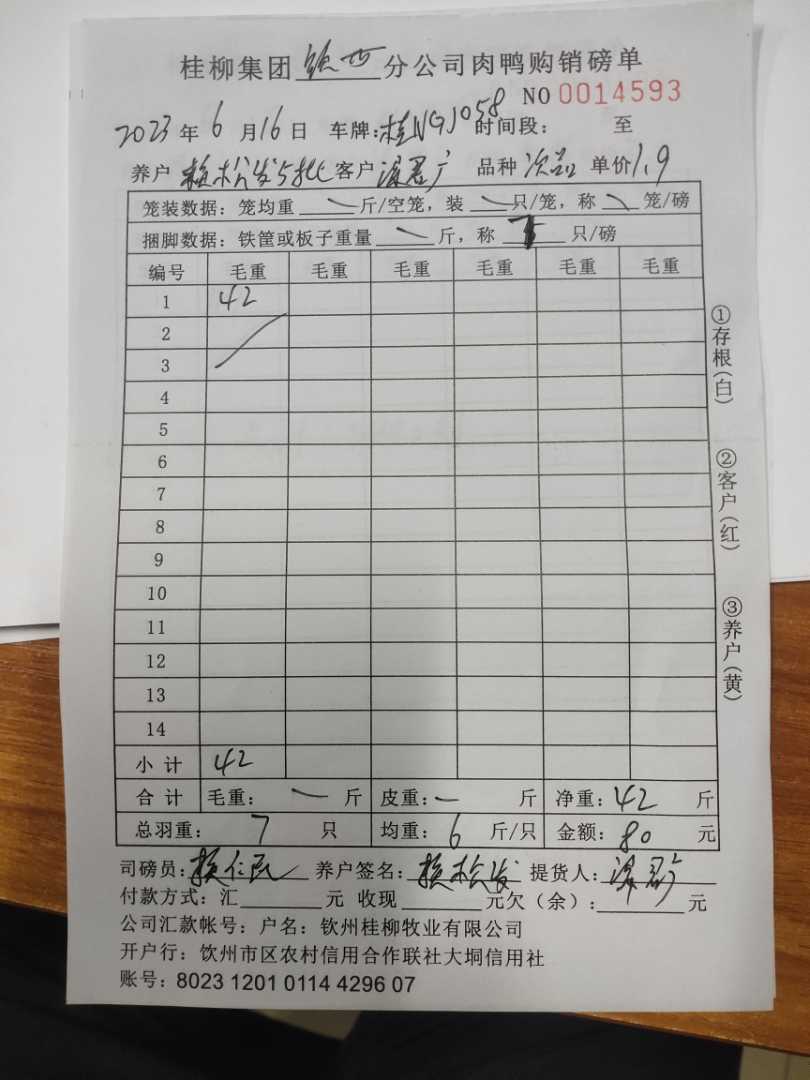 桂柳集团钦西分公司肉鸭购销磅单
NO 0014593
2023年6月16日 车牌:桂NGJ058 时间段: 至
养户 松发5批 客户 品种 次品 单价1.9
笼装数据：笼均重 — 斤/空笼，装 — 只/笼，称 — 笼/磅
捆脚数据：铁筐或板子重量 — 斤，称 7 只/磅
编号 毛重 毛重 毛重 毛重 毛重 毛重
1 42
2
3
4
5
6
7
8
9
10
11
12
13
14
小计 42
合计 毛重： — 斤 皮重：— 斤 净重：42 斤
总羽重： 7 只 均重： 6 斤/只 金额：80 元
司磅员： 养户签名：松发 提货人：
付款方式：汇 元 收现 元欠（余）： 元
公司汇款帐号：户名：钦州桂柳牧业有限公司
开户行：饮州市区农村信用合作联社大垌信用社
账号：8023 1201 0114 4296 07
①存根（白）
②客户（红）
③养户（黄）